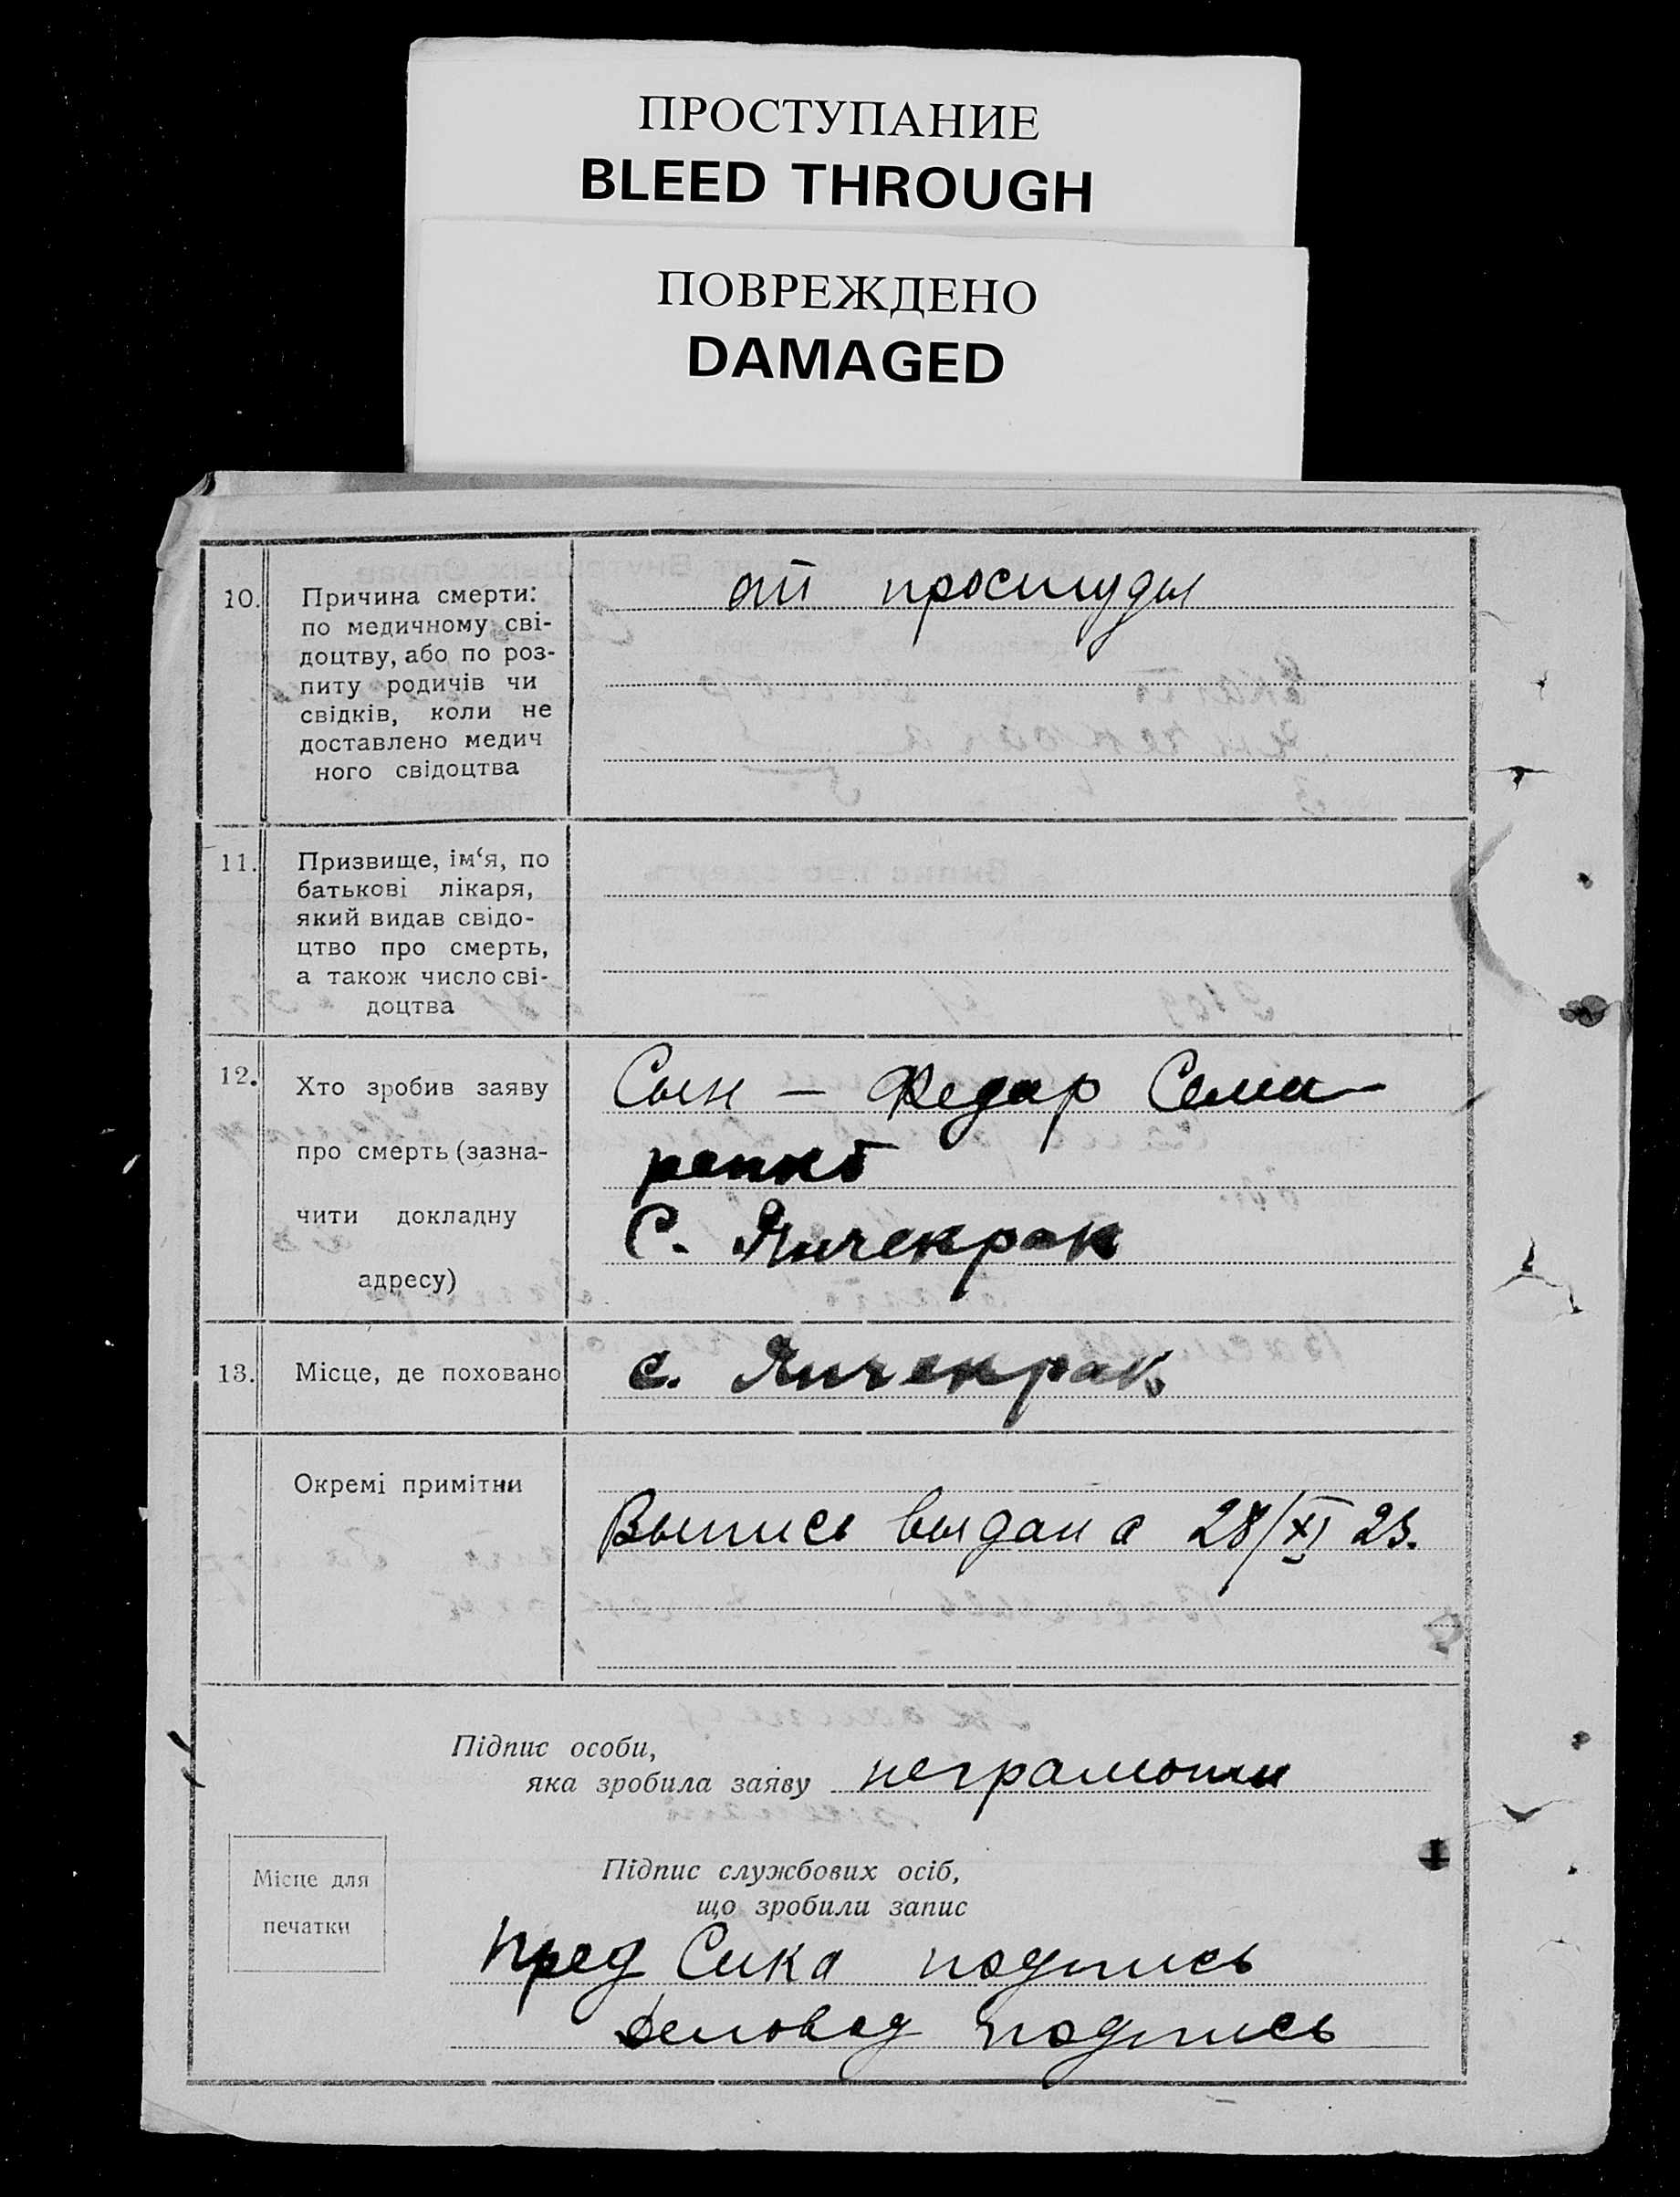 ПРОСТУПАНИЕ
BLEED THROUGH
ПОВРЕЖДЕНО
DAMAGED
10.
Причина смерти:
по медичному сві-
доцтву, або по роз-
питу родичів чи
свідків, коли не
доставлено медич
ного свідоцтва
от простуды
11.
Призвище, ім‘я, по
батькові лікаря,
який видав свідо-
цтво про смерть,
а також число сві-
доцтва
12.
Хто зробив заяву
про смерть (зазна-
чити докладну
адресу)
Сын — Федор Семи
С. Янчекрак
13.
Місце, де поховано
с. Янчекрак
Окремі примітки
Выпись выдана 28/XI 23.
Підпис особи,
яка зробила заяву неграмотн
Місце для
печатки
Підпис службових осіб,
що зробили запис
Пред Сика подпись
Деловод подпись